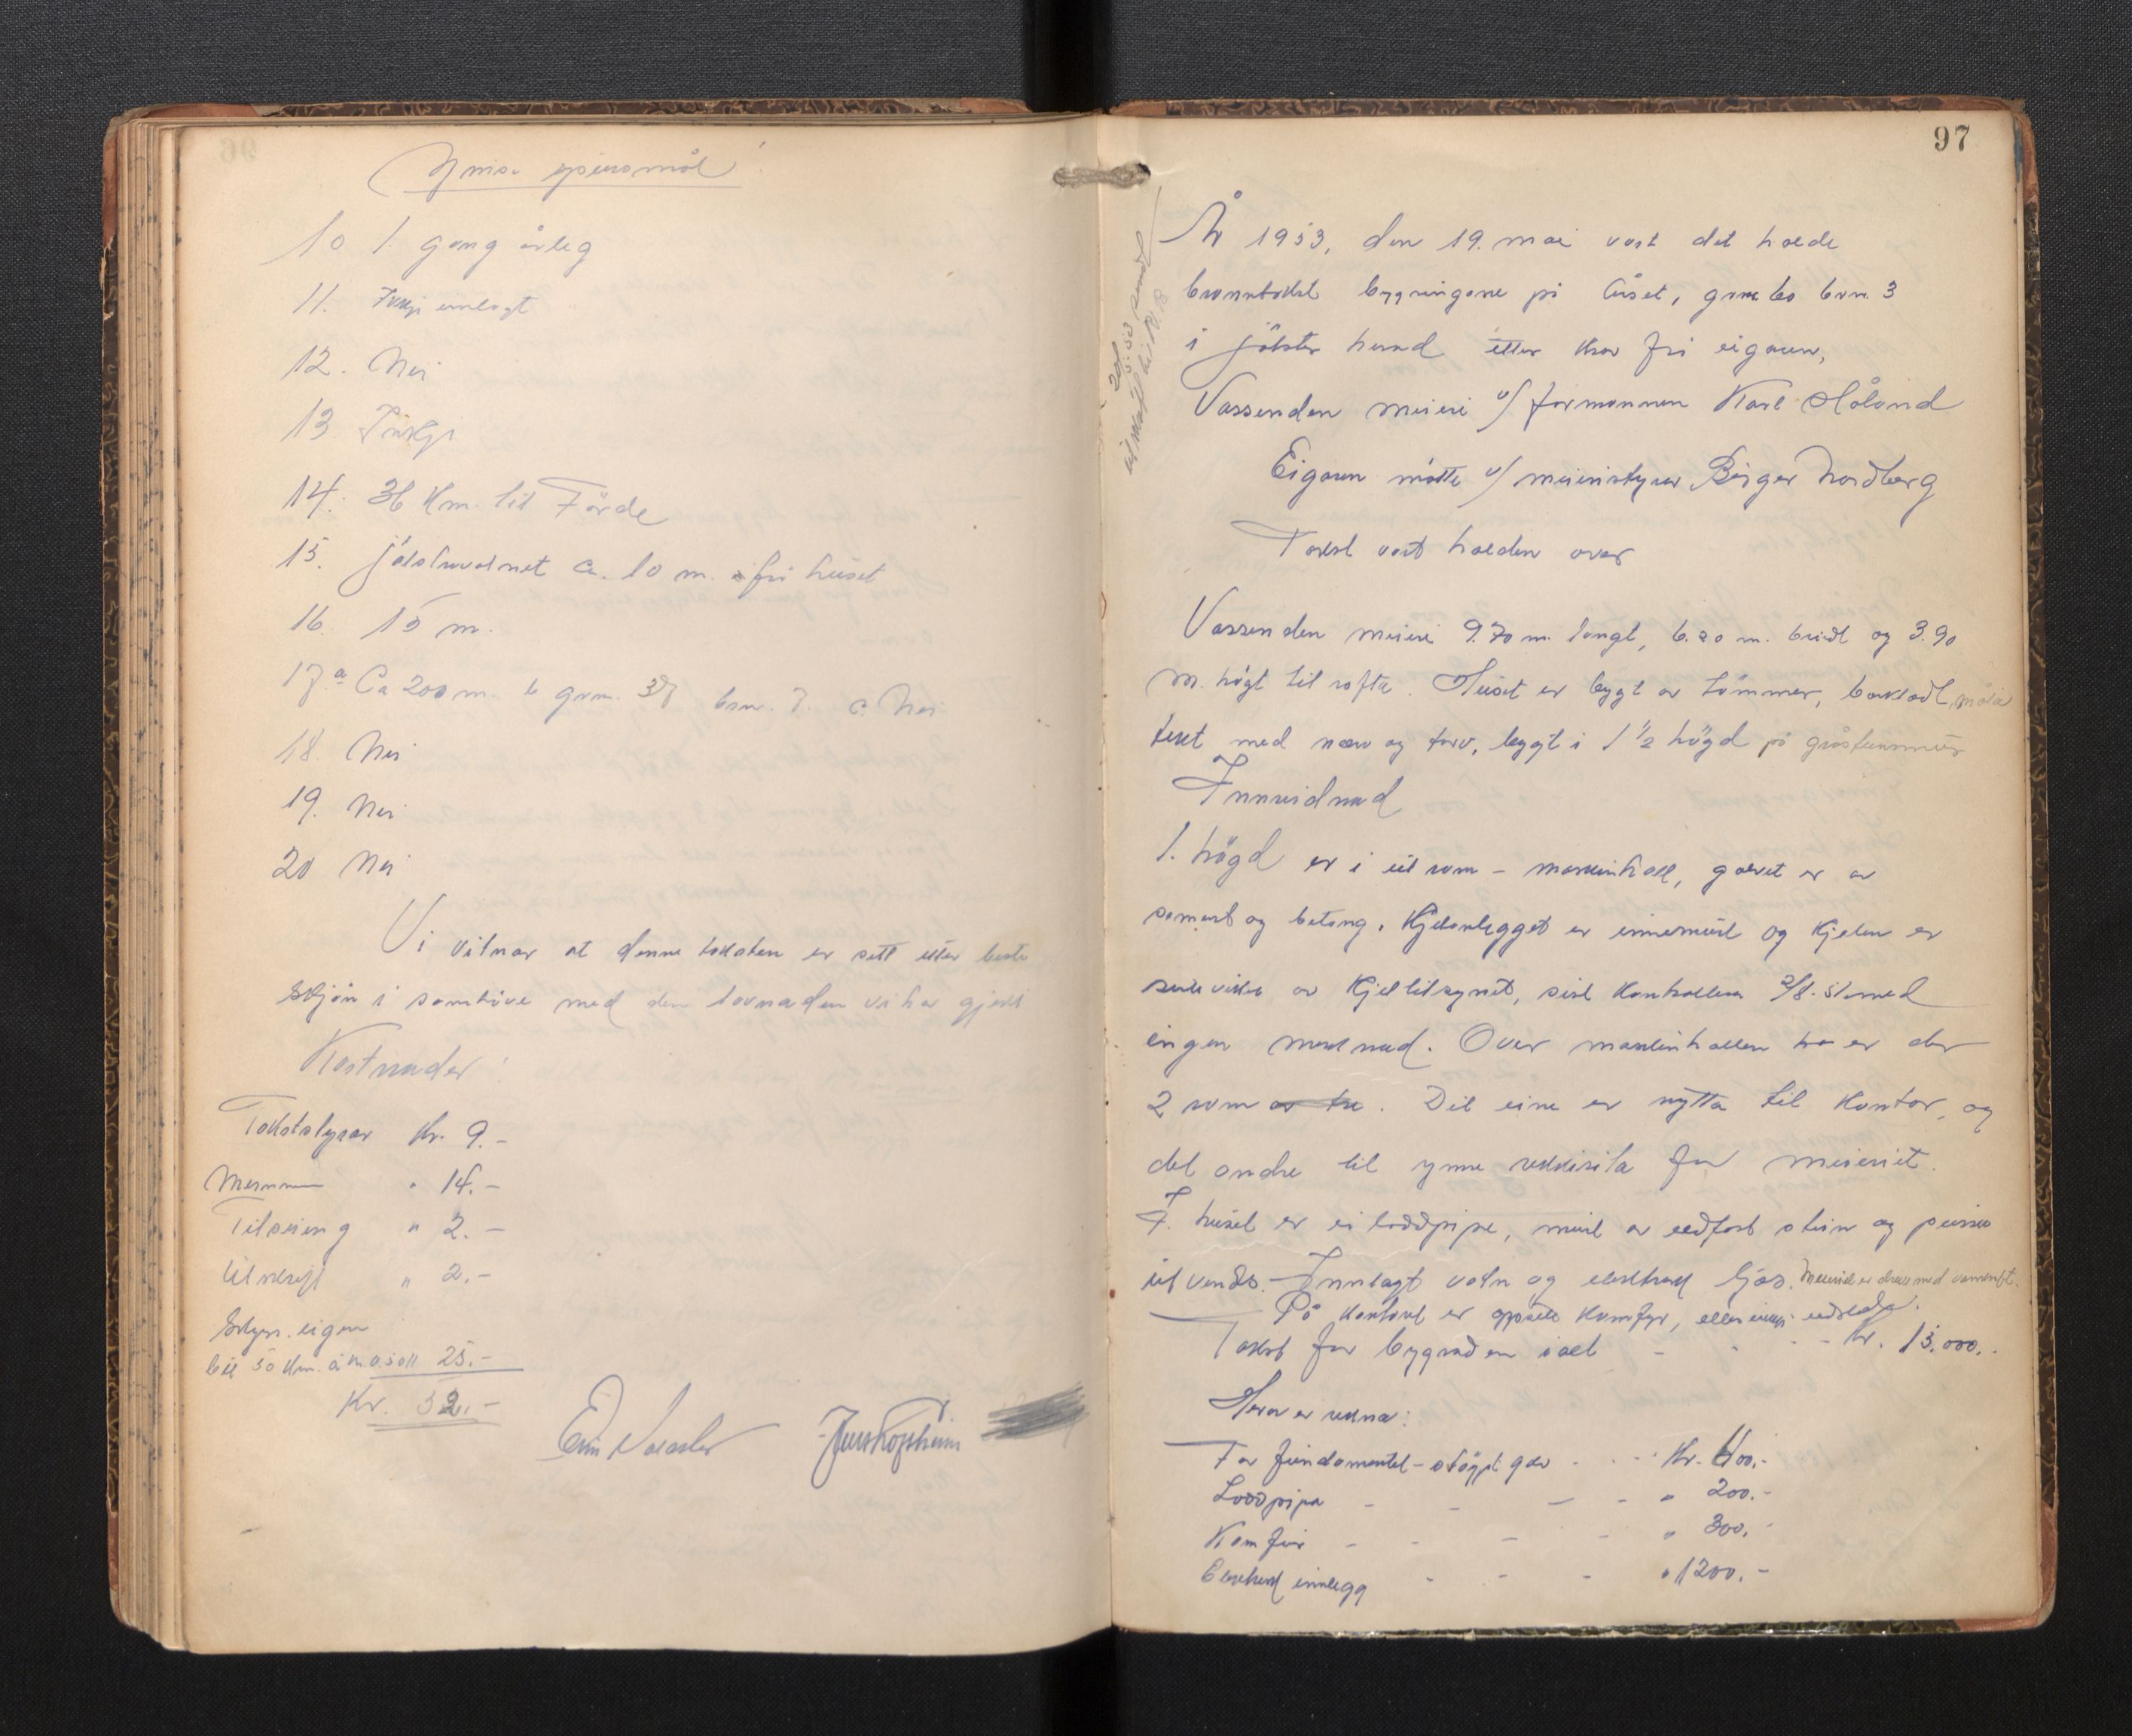 Ymse spursmål
10 1. gong årleg
11. Ikkje innlagt
12. Nei
13 Ikkje
14. 36 Km. til Förde
15. Jölstravatnet ca. 10 m. frå huset
16. 15 m.
17.a Ca 200 m. b gnr. 37 bnr. 7. c. Nei
18. Nei
19. Nei
20 Nei
Vi vitnar at denne taksten er sett etter beste
skjön i samhöve med den lovnaden vi har gjeve
Kostnader
Takststyrar Kr. 9.-
" 14.-
Tilseing " 2.-
Utskrift " 2.-
Skyss. eigen
bil 50 Km. á kr. 0.50 25.-
Kr. 52.-
97
År 1953, den 19. mai vart det halde
branntakst bygningane på Åset, gnr. 60 bnr. 3
i Jölster herad etter krav frå eigaren,
Vassenden meieri v/ formannen Karl Håland
Eigaren mötte v/ meieristyrar Birger Nordberg
Takst vart halden over
Vassenden meieri 9.70 m. langt, 6.20 m. breidt og 3.90
m. högt til rafta. Huset er bygt av tömmer, bordkledt, måla
tekt med næver og torv, bygt i 1 1/2 högd på gråsteinsmur
Innreidnad
1. högd er i eit rom - maskinhall, golvet er av
sement og betong. Kjelanlegget er innemurt og kjelen er
av Kjeltilsynet, sist kontrollera 2/8.51 med
ingen merknad. Over maskinhallen er der
2 rom av tre. Det eine er nytta til kontor, og
det andre til ymse rekvisita for meieriet.
I huset er ei loddpipe, murt av eldfast stein og pussa
utvendes. Innlagt vatn og elektrisk ljos.
På kontoret er oppsett komfyr, ellers ikkje eldstade.
Takst for bygnaden i alt - - - Kr. 15.000.-
Herav er rekna:
For fundamentet - stöypt golv - - Kr. 600.-
Loddpipa - - - - " 200.-
Komfyr - - - - " 300.-
Elektrisk innlegg - - - " 1200.-